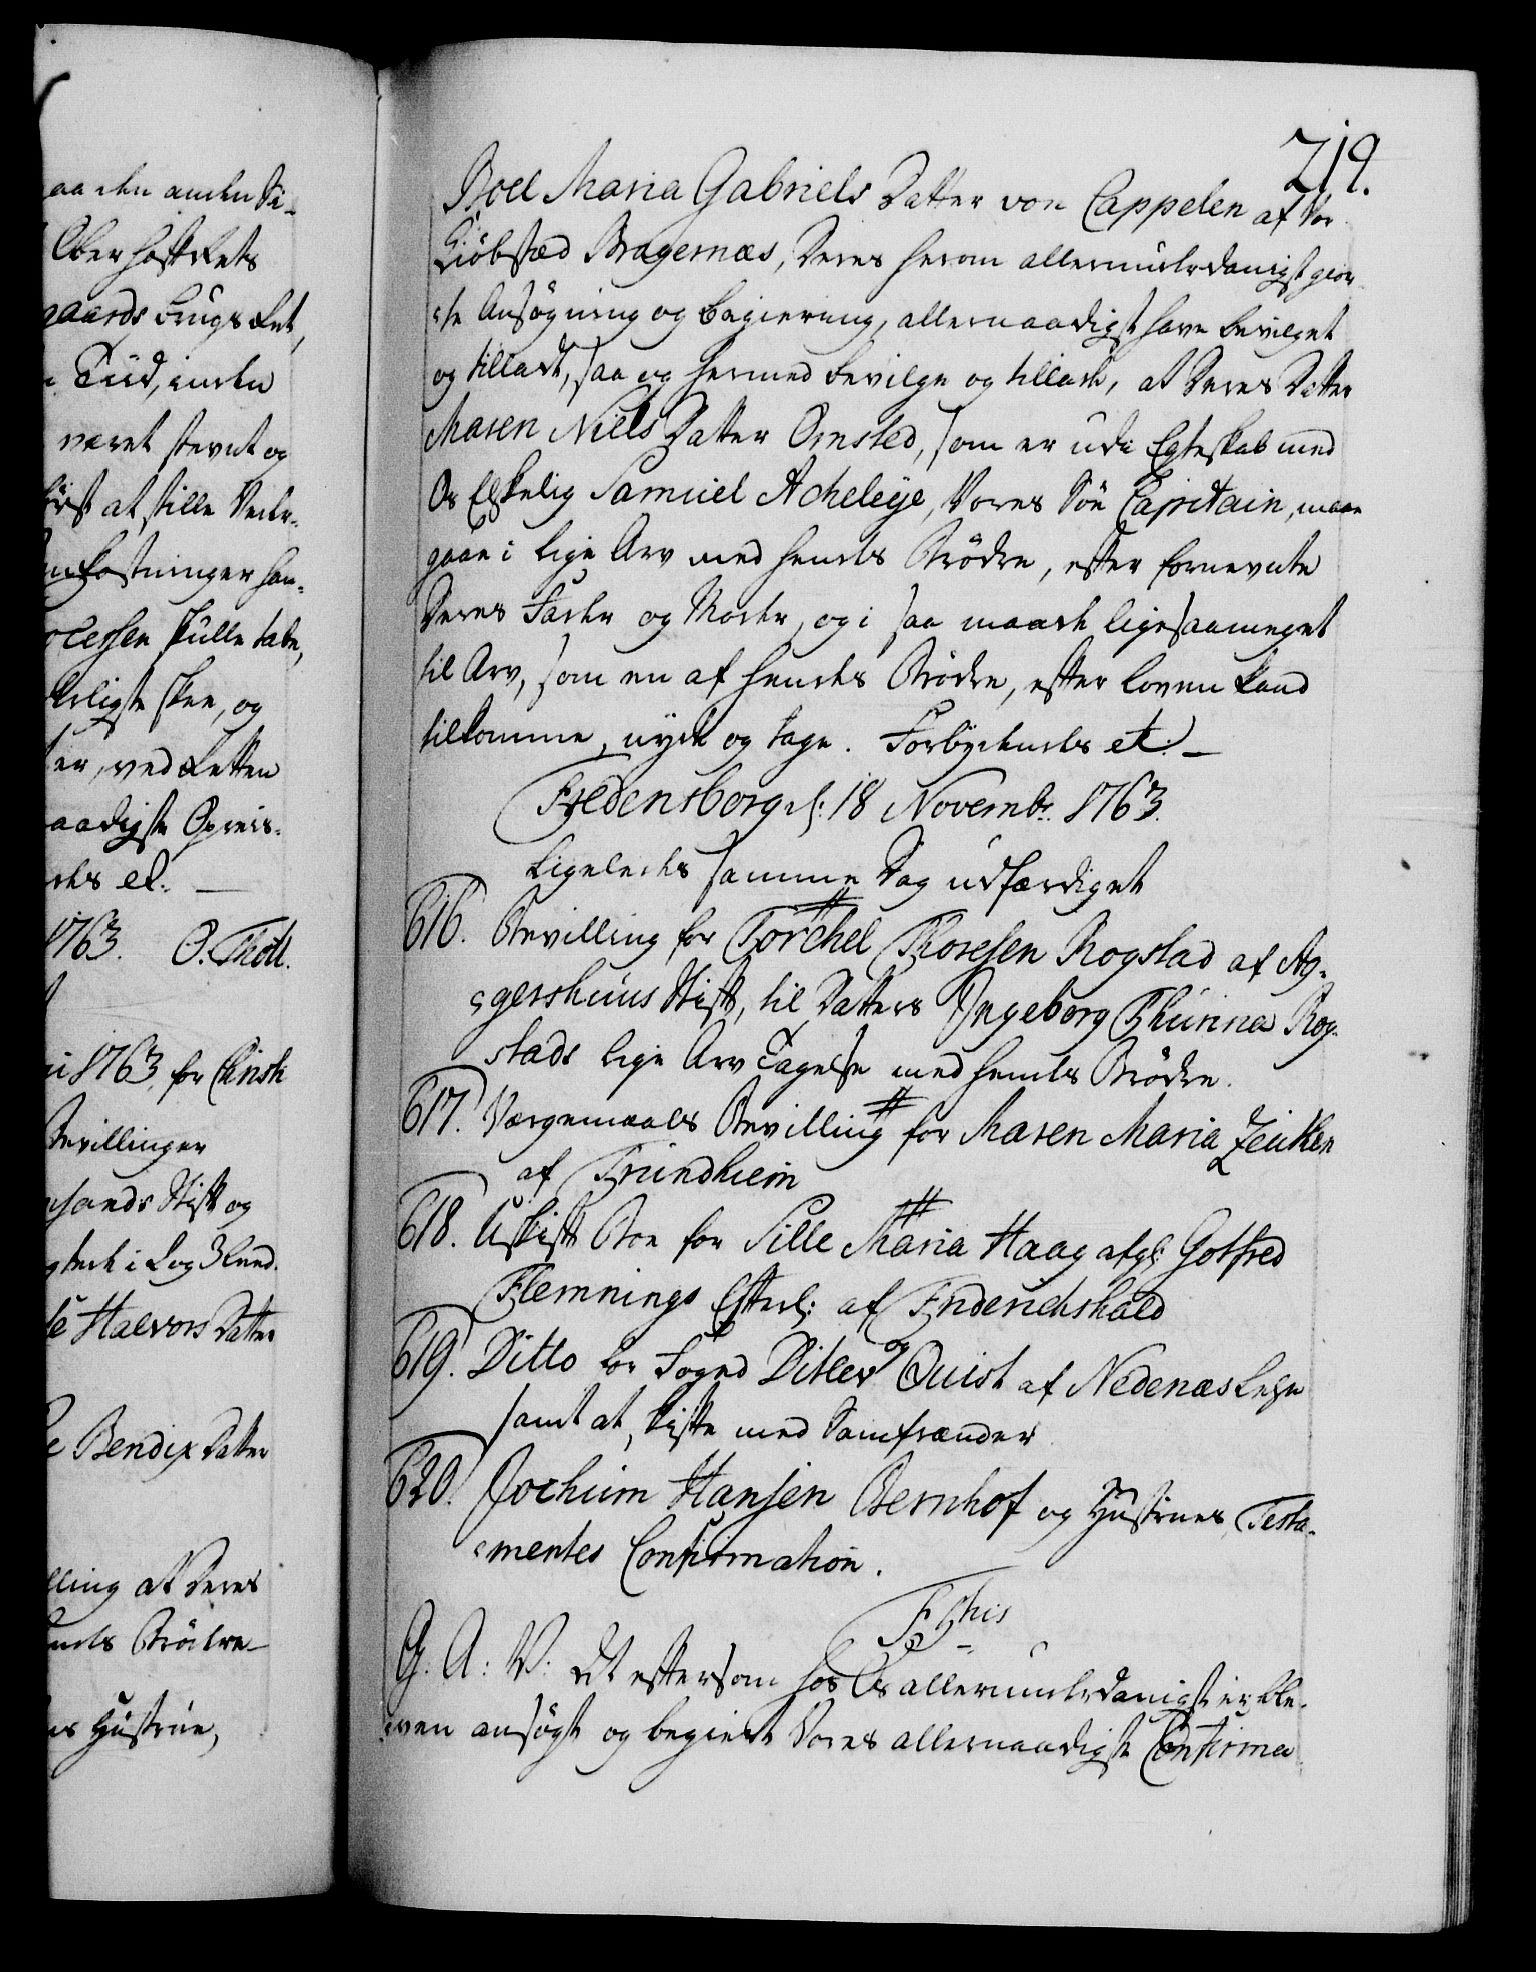 aa den anden Si-
Ober Hofrets
gaards Brugs Ret,
Tiid, inden
været stevnt og
først at stille Veder-
omkostninger han-
ocessen skulle tabe,
derligst skee, og
er, ved Retten
aadigste Opreis-
des et. —
1763. O. Thott.
i 1763 for Christi
Bevillinger
nsands Stift og
gtede i Log 3 Leed.
Halvors Datter
e Bendix Datter
lling at Deres
endes Brödre
ns Hustrue,
219.
Boel Maria Gabriels Datter von Cappelen af Vor
Kiöbsted Bragernæs, Deres herom allerunderdanigst gior-
de Ansøgning og Begiering, allernaadigst have bevilget
og tilladt, saa og hermed bevilge og tillade, at Deres Datter
Maren Niels Datter Omsted, som er udi Egteskab med
Os Elskelig Samuel Acheleye, Vores Söe Capitain, maae
gaae i lige Arv med hendes Brödre, efter fornevnte
Deres Fader og Moder, og i saa maade ligesaameget
til Arv, som en af hendes Brödre, efter Loven kand
tilkomme, nyde og tage. Forbydendes et. —
Fredensborg d: 18 Novembr. 1763.
Ligeledes samme Dag udfærdiget
616. Bevilling for Torchel Thoresen Rogstad af Ag-
gershuus Stift, til Datters Ingeborg Thurina Rog-
stads lige Arv Tagelse med hendes Brödre.
617. Værgemaals Bevilling for Maren Maria Zeuthen
af Trundhiem
618. Uskift Boe for Sille Maria Haag afg: Gotfred
Flemnings Efterl: af Friderichshald
619. Ditto for Foged Ditlev Quist af Nedenæs Lehn
samt at skifte med Samfrænder
620. Jochum Hansen Bernhof og Hustrues Testa-
mentes Confirmation.
G. A: V: At eftersom hos Os allerunderdanigst er ble-
even ansögt og begiert Vores allernaadigste Confirma